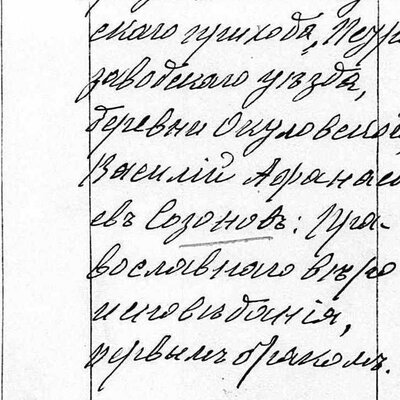 скаго прихода, Петро
заводскаго уѣзда,
деревни Окуловской,
Василій Афанась
евъ Созоновъ: Пра-
вославнаго вѣро
исповѣданія,
первымъ бракомъ.